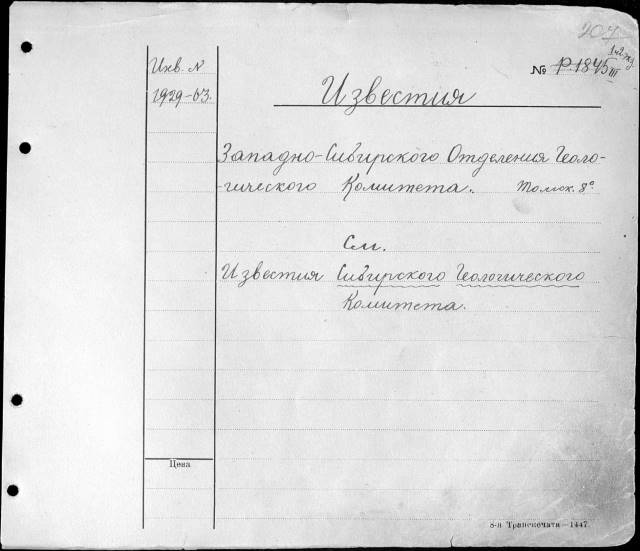 207
1 и 2 экз
№ Р.1845 III
Инв. N
1929-03.
Известия
Западно-Сибирского Отделения Геоло-
-гического Комитета. Томск. 8°
См.
Известия Сибирского Геологического
Комитета.
Цена
8-я Транспечати—1447